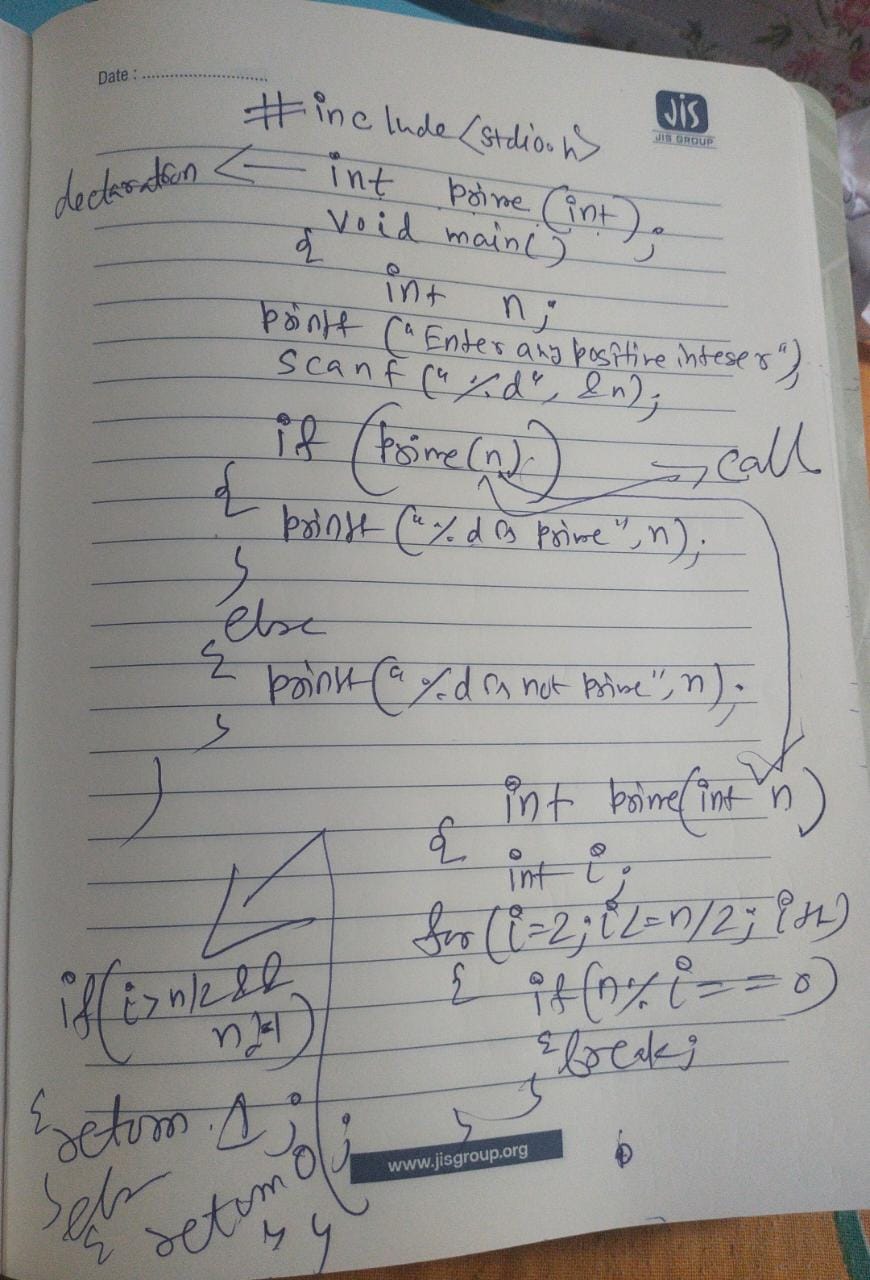 Date :
JIS
JIS GROUP
#include <stdio.h>
declaration ← int prime (int);
void main()
{
int n;
printf ("Enter any positive integer");
scanf ("%d", &n);
if (prime(n)) → call
{
printf ("%d is prime", n);
}
else
{
printf ("%d is not prime", n);
}
}
int prime(int n)
{
int i;
for (i=2; i<=n/2; i++)
{ if (n%i==0)
{ break;
} }
if (i>n/2 &&
n≥1)
{ return 1;
} else
{ return 0;
} }
www.jisgroup.org